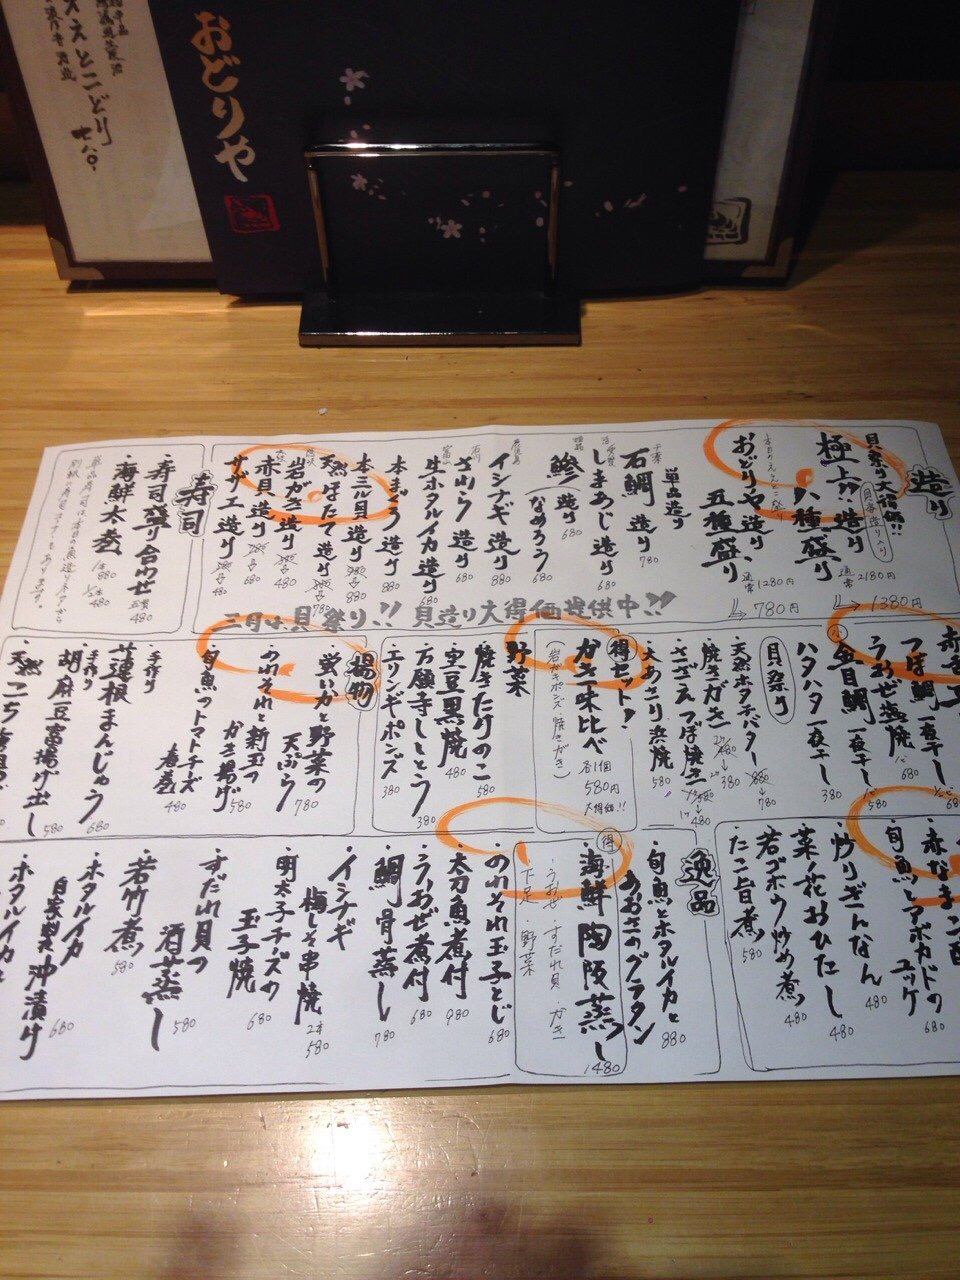 おどりや
造り
貝祭り大得価!!
極上造り
八種盛り
通常2180円
1380円
おどりや造り
五種盛り
通常1280円
780円
単品造り
石鯛造り 780
しまあじ造り 680
鯵
造り
なめろう
680
イシナギ造り 880
さわら造り 680
生ホタルイカ造り 680
本まぐろ造り 880
本ミル貝造り
天然ほたて造り
780
岩がき造り
480
赤貝造り
680
サザエ造り
480
寿司
寿司盛り合わせ
五貫 480
海鮮太巻
1本 880
1/2本 480
三月は貝祭り!! 貝造り大得価提供中!!
つぼ鯛一夜干し
うおぜ塩焼 680
金目鯛一夜干し
580
ハタハタ一夜干し
380
貝祭り
天然ホタテバター
880
780
焼きがき
480
380
さざえつぼ焼き
580
480
大あさり浜焼
580
得セット!
かき三昧比べ
各1個
580円
大得価!!
(岩がきポンズ・焼きがき)
野菜
焼きたけのこ
580
空豆黒焼
480
万願寺ししとう
380
エリンギポンズ
380
揚物
蛍いかと野菜の
天ぷら
780
のれそれと新玉の
かき揚げ
580
旬魚のトマトチーズ
春巻
480
手作り
蓮根まんじゅう
680
手作り
胡麻豆富揚げ出し
580
赤なまこ酢
旬魚とアボカドの
ユッケ
680
炒りぎんなん
480
菜ノ花おひたし
480
若ゴボウ炒め煮
480
たこ旨煮
580
逸品
旬魚とホタルイカと
あおさのグラタン
880
得
海鮮陶板蒸し
1480
・うおぜ・すだれ貝・かき
下足・野菜
のれそれ玉子とじ
680
太刀魚煮付
980
うおぜ煮付
680
鯛骨蒸し
780
イシナギ
梅しそ串焼
2本 580
明太子チーズの
玉子焼
680
すだれ貝の
酒蒸し
580
若竹煮
580
ホタルイカ
自家製沖漬け
680